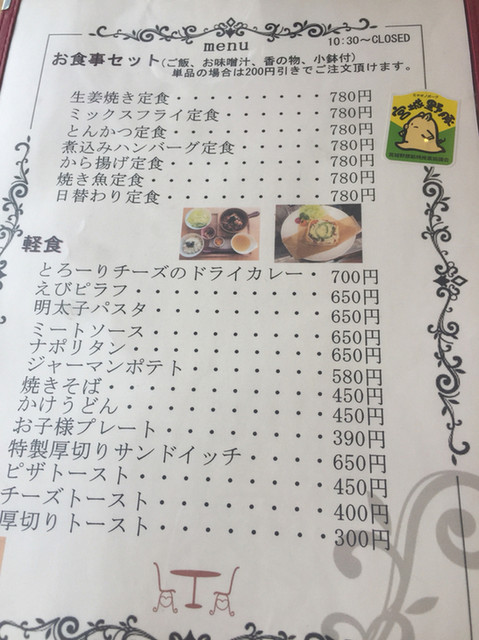 menu
10:30~CLOSED
お食事セット(ご飯、お味噌汁、香の物、小鉢付)
単品の場合は200円引きでご注文頂けます。
生姜焼き定食・・・・・・・・・780円
ミックスフライ定食・・・・・・780円
とんかつ定食・・・・・・・・・780円
煮込みハンバーグ定食・・・・・780円
から揚げ定食・・・・・・・・・780円
焼き魚定食・・・・・・・・・・780円
日替わり定食・・・・・・・・・780円
宮城野豚
軽食
とろーりチーズのドライカレー・700円
えびピラフ・・・・・・・・・・650円
明太子パスタ・・・・・・・・・650円
ミートソース・・・・・・・・・650円
ナポリタン・・・・・・・・・・650円
ジャーマンポテト・・・・・・・580円
焼きそば・・・・・・・・・・・450円
かけうどん・・・・・・・・・・450円
お子様プレート・・・・・・・・390円
特製厚切りサンドイッチ・・・・650円
ピザトースト・・・・・・・・・450円
チーズトースト・・・・・・・・400円
厚切りトースト・・・・・・・・300円